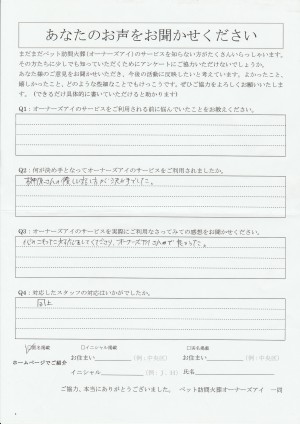 あなたのお声をお聞かせください
まだまだペット訪問火葬(オーナーズアイ)のサービスを知らない方がたくさんいらっしゃいます。
その方たちに少しでも知っていただくためにアンケートにご協力いただけないでしょうか。
あなた様のご意見をお聞かせいただき、今後の活動に反映したいと考えています。よかったこと、
嬉しかったこと、どのような些細なことでもけっこうです。ぜひご協力をよろしくお願いいたしま
す。(できるだけ具体的に書いていただけると助かります)
Q1:オーナーズアイのサービスをご利用される前に悩んでいたことをお教えください。
Q2:何が決め手となってオーナーズアイのサービスをご利用されましたか。
Q3:オーナーズアイのサービスを実際にご利用なさってみての感想をお聞かせください。
オーナーズアイさんで良かった。
Q4:対応したスタッフの対応はいかがでしたか。
同上
匿名掲載 □イニシャル掲載 □実名掲載
ホームページでご紹介
お住まい (例:中央区) お住まい (例:中央区)
イニシャル (例:J.M) 氏名
ご協力、本当にありがとうございました。 ペット訪問火葬オーナーズアイ 一同